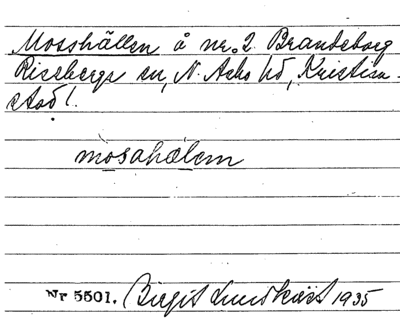 Mosshällen å nr. 2 Brandeborg
Riseberga sn, N. Åsbo hd, Kristian-
stad l.
mosahælem
Nr 5501. Birgit Lundkvist 1935